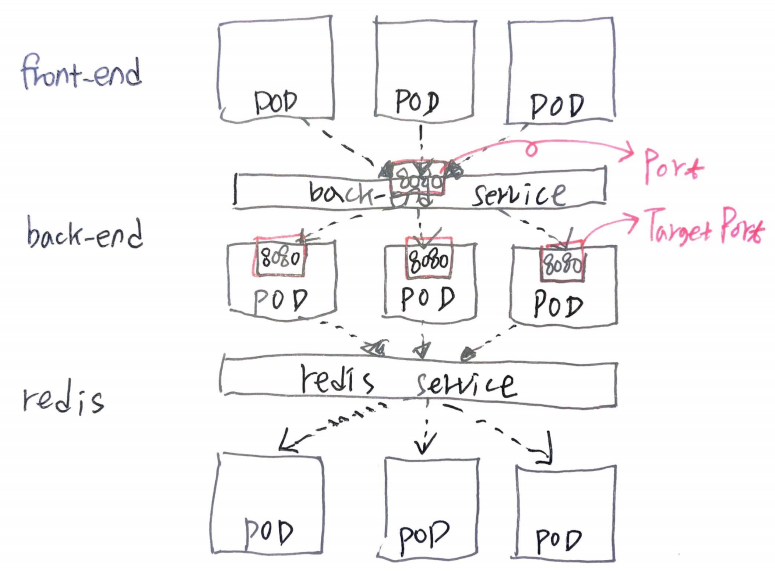 front-end
POD
POD
POD
8080
Port
back-end service
back-end
Target Port
8080
8080
8080
POD
POD
POD
redis service
redis
POD
POD
POD